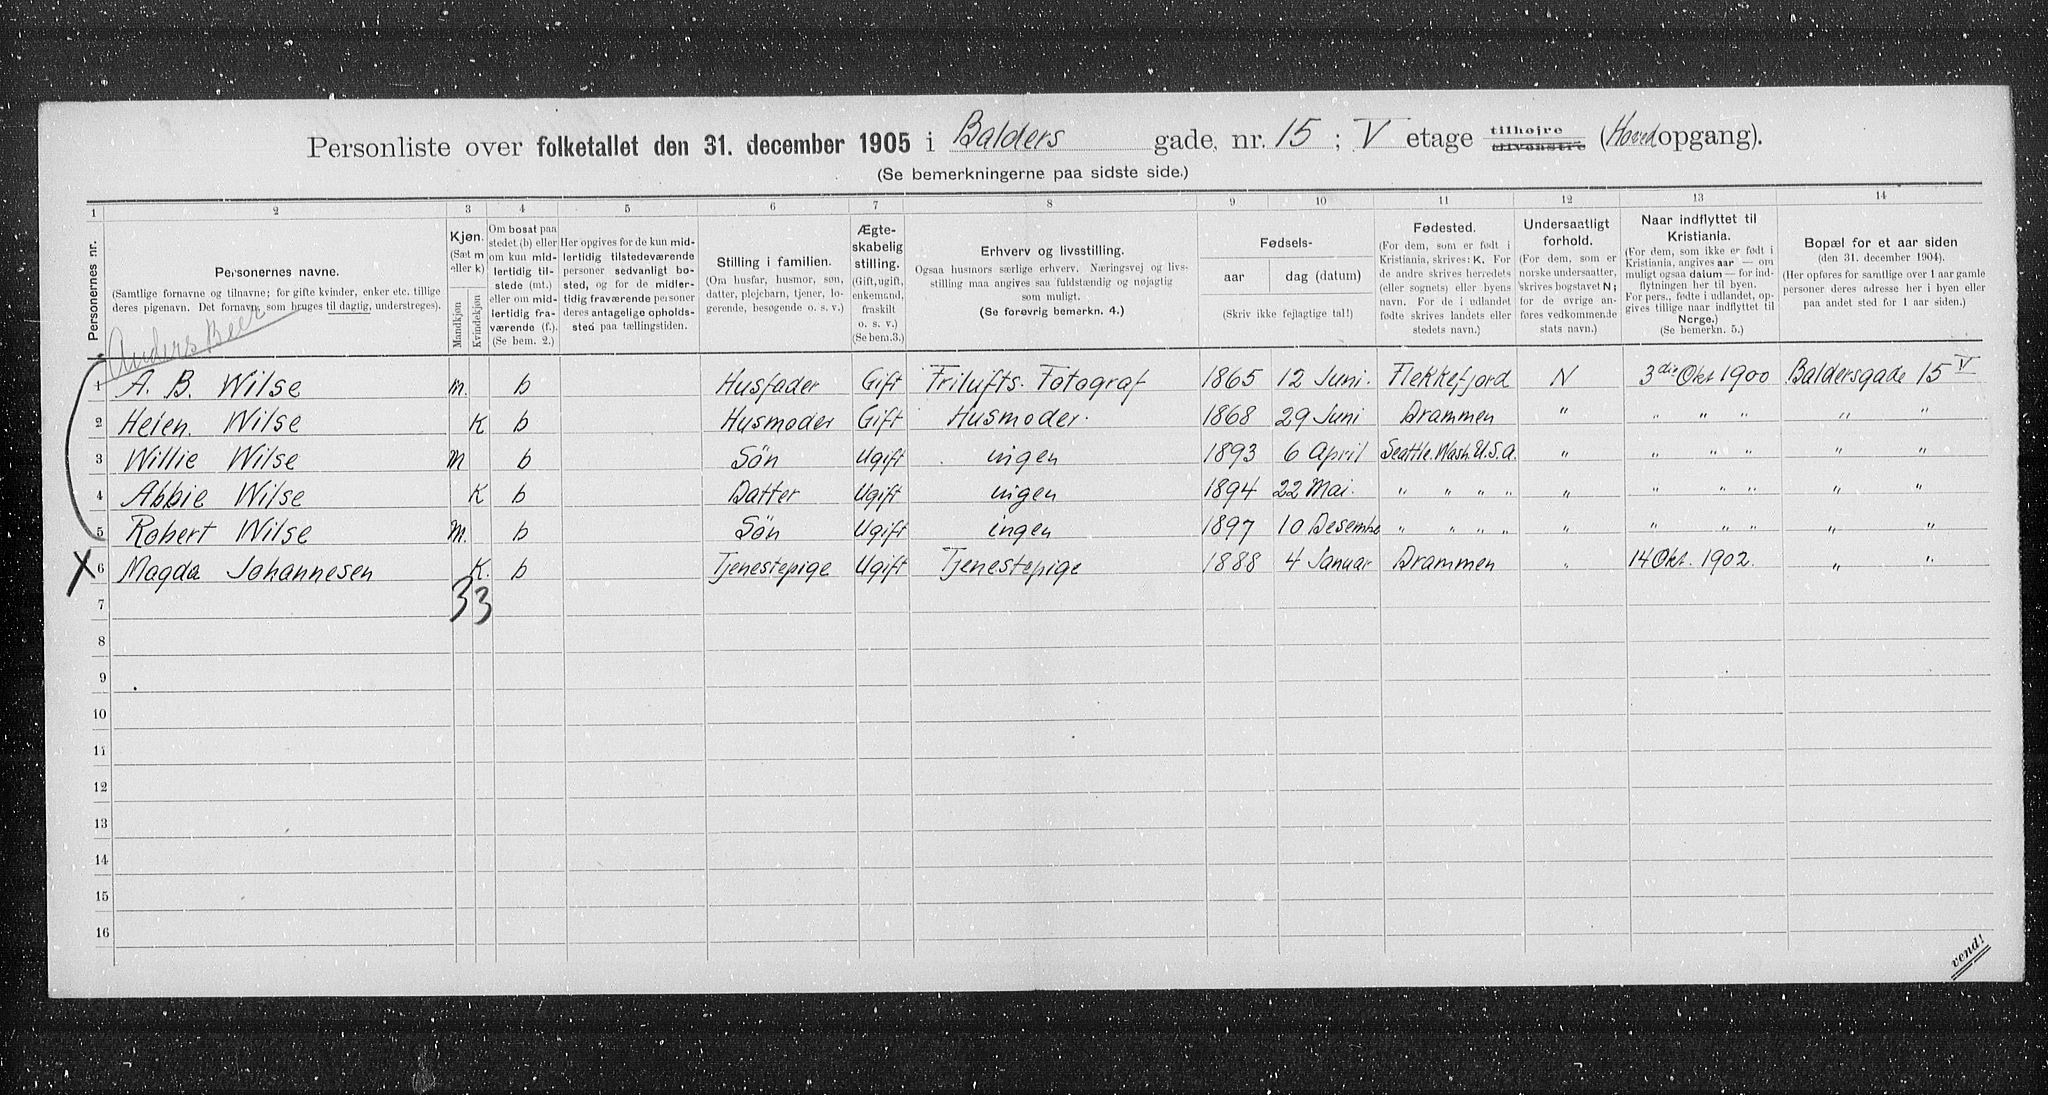 Personliste over folketallet den 31. december 1905 i Balders gade, nr. 15 ; V etage tilhøjre tilvenstre (Hovedopgang).
(Se bemerkningerne paa sidste side.)
1 2 3 4 5 6 7 8 9 10 11 12 13 14
Personernes nr.
Personernes navne.
(Samtlige fornavne og tilnavne; for gifte kvinder, enker etc. tillige
deres pigenavn. Det fornavn, som bruges til dagtig, understreges).
Kjøn.
(Sæt m
eller k)
Mandkjøn
Kvindekjøn
Om bosat paa
stedet (b) eller
om kun mid-
lertidig til-
stede (mt.)
eller om mid-
lertidig fra-
værende (f.).
(Se bem. 2.)
Her opgives for de kun mid-
lertidig tilstedeværende
personer sedvanligt bo-
sted, og for de midler-
tidig fraværende personer
deres antagelige opholds-
sted paa tællingstiden.
Stilling i familien.
(Om husfar, husmor, søn,
datter, plejebarn, tjener, lo-
gerende, besøgende o. s. v.)
Ægte-
skabelig
stilling.
(Gift, ugift,
enkemand,
fraskilt
o. s. v.)
(Se bem.3.)
Erhverv og livsstilling.
Ogsaa husmors særlige erhverv. Næringsvej og livs-
stilling maa angives saa fuldstændig og nøjagtig
som muligt.
(Se forøvrig bemerkn. 4.)
Fødsels-
aar
dag (datum)
(Skriv ikke fejlagtige tal!)
Fødested.
(For dem, som er født i
Kristiania, skrives: K. For
de andre skrives herredets
(eller sognets) eller byens
navn. For de i udlandet
fødte skrives landets eller
stedets navn.)
Undersaatligt
forhold.
(For dem, som er
norske undersaatter,
skrives bogstavet N;
for de øvrige an-
føres vedkommende
stats navn.)
Naar indflyttet til
Kristiania.
(For dem, som ikke er født i
Kristiania, angives aar — om
muligt ogsaa datum — for ind-
flytningen her til byen.
For pers., fødte i udlandet, op-
gives tillige naar indflyttet til
Norge.)
(Se bemerkn. 5.)
Bopæl for et aar siden
(den 31. december 1904).
(Her opføres for samtlige over 1 aar gamle
personer deres adresse her i byen eller
paa andet sted for 1 aar siden.)
Anders Beer
1 A. B. Wilse m. b Husfader Gift Frilufts. Fotograf 1865 12 Juni. Flekkefjord N 3die Okt 1900 Baldersgade 15 V
2 Helen. Wilse K b Husmoder Gift Husmoder. 1868 29 Juni Drammen " " " " " "
3 Willie Wilse m b Søn Ugift ingen 1893 6 April Seattle. Wash. U.S.A. " " " " " "
4 Abbie Wilse K b Datter Ugift ingen 1894 22 Mai. " " " " " " " " " "
5 Robert Wilse m. b Søn Ugift ingen 1897 10 Desembe " " " " " " " " " "
X 6 Magda Johannesen K. b Tjenestepige Ugift Tjenestepige 1888 4 Januar Drammen " 14 Okt. 1902. " "
7 3 3
8
9
10
11
12
13
14
15
16
vend!